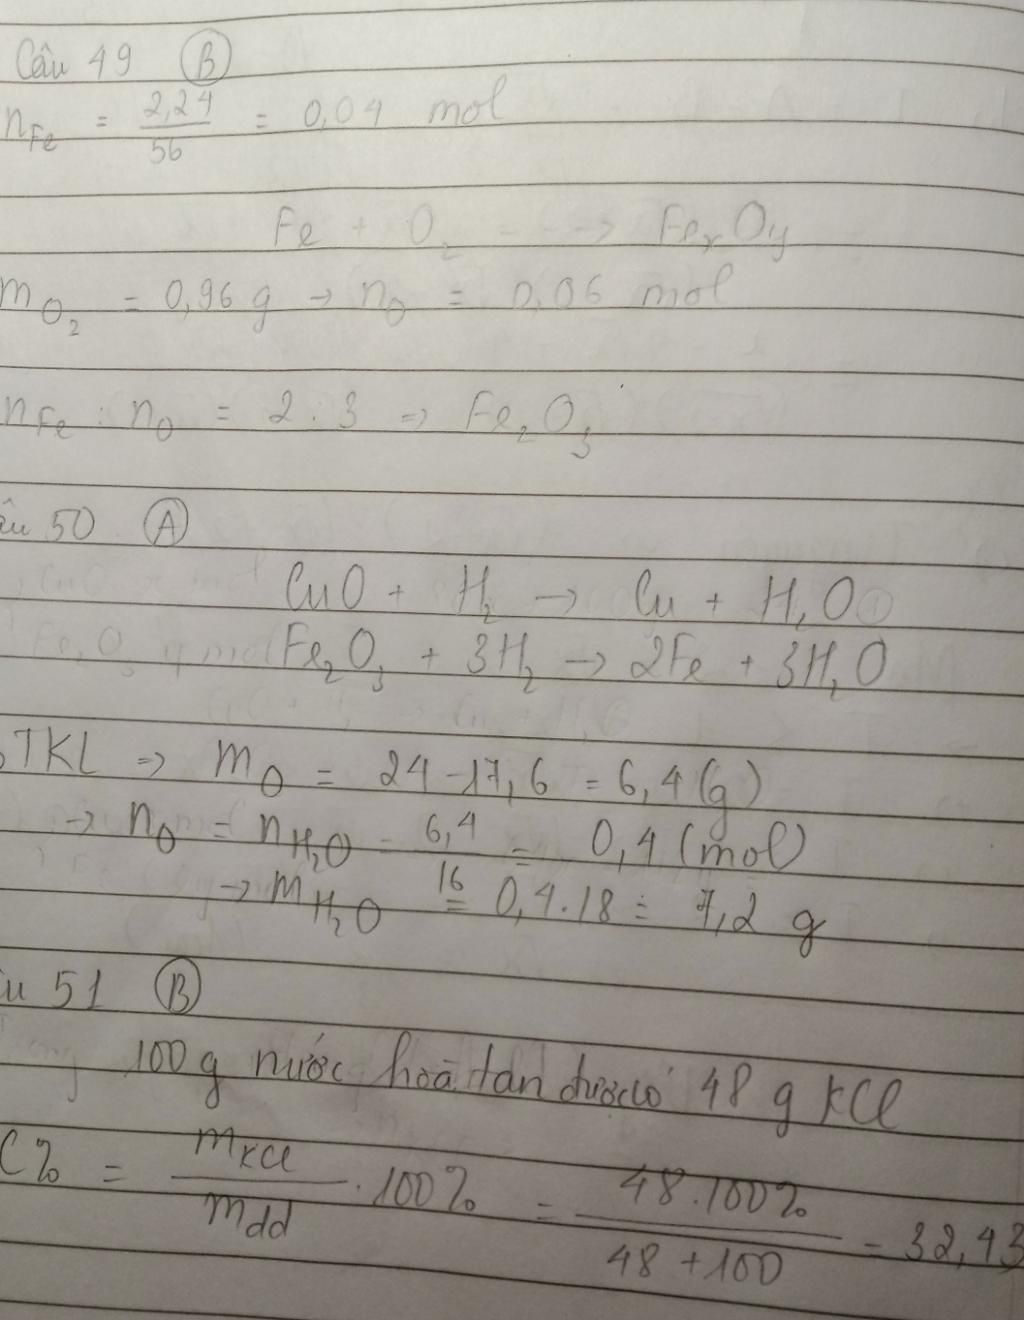 Câu 49 B
nFe = 2,24/56 = 0,04 mol
Fe + O₂ ---> FexOy
mO₂ = 0,96 g → nO = 0,06 mol
nFe : nO = 2 : 3 => Fe₂O₃
âu 50 A
CuO + H₂ → Cu + H₂O
Fe₂O₃ + 3H₂ → 2Fe + 3H₂O
TKL => mO = 24 - 17,6 = 6,4 (g)
→ nO = nH₂O = 6,4/16 = 0,4 (mol)
→ mH₂O = 0,4.18 = 7,2 g
u 51 B
100 g nước hoà tan được 48 g KCl
C% = mKCl/mdd . 100% = 48.100%/48 + 100 = 32,43